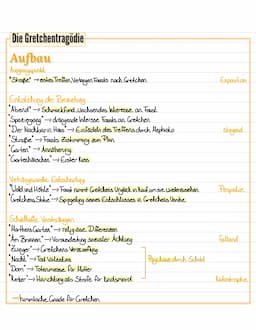 Die Gretchentragödie
Aufbau
Ausgangspunkt
"Straße" → erstes Treffen, Verlangen Fausts nach Gretchen Exposition
Entwicklung der Beziehung
"Abend" → Schmuckfund, wachsendes Interesse an Faust
"Spaziergang" → drängende Interesse Fausts an Gretchen
"Der Nachbarin Haus" → Einfädeln des Treffens durch Mephisto steigend
"Straße" → Fausts Zustimmung zum Plan
"Garten" → Annäherung
"Gartenhäuschen" → Erster Kuss
"Wald und Höhle" → Faust nimmt Gretchens Unglück in Kauf um sie wiederzusehen Peripetie
Gretchens Stube → Spiegelung eines Entschlusses in Gretchens Unruhe
"Marthens Garten" → religiöse Differenzen
"Am Brunnen" → Vorausdeutung sozialer Ächtung Fallend
"Zwinger" → Gretchens Verzweiflung
"Nacht" → Tod Valentins Psychose durch Schuld
"Dom" → Totenmesse für Mutter
"Kerker" → Hinrichtung als Strafe für Kindsmord Katastrophe
→ himmlische Gnade für Gretchen